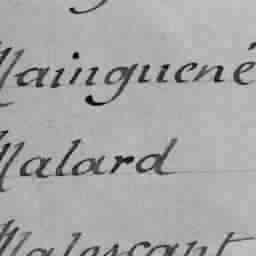 Mainguené
Malard
Malescant